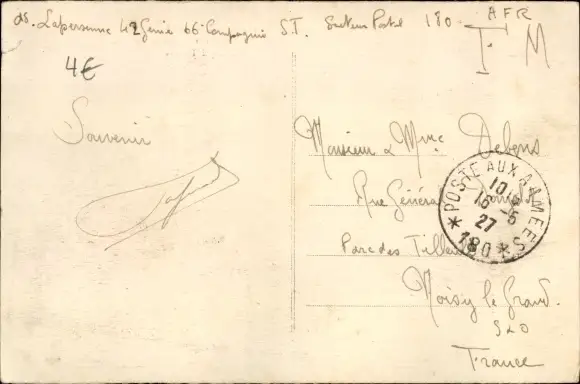 ds. Lapersenne 42 Génie 66e Compagnie S.T. Secteur Postal 180. AFR
F. M
4€
Souvenir
Monsieur & Mme Debons
Rue Général
Parc des
Noisy le Grand.
S&O
France
POSTE AUX ARMEES
16-5
27
*180*